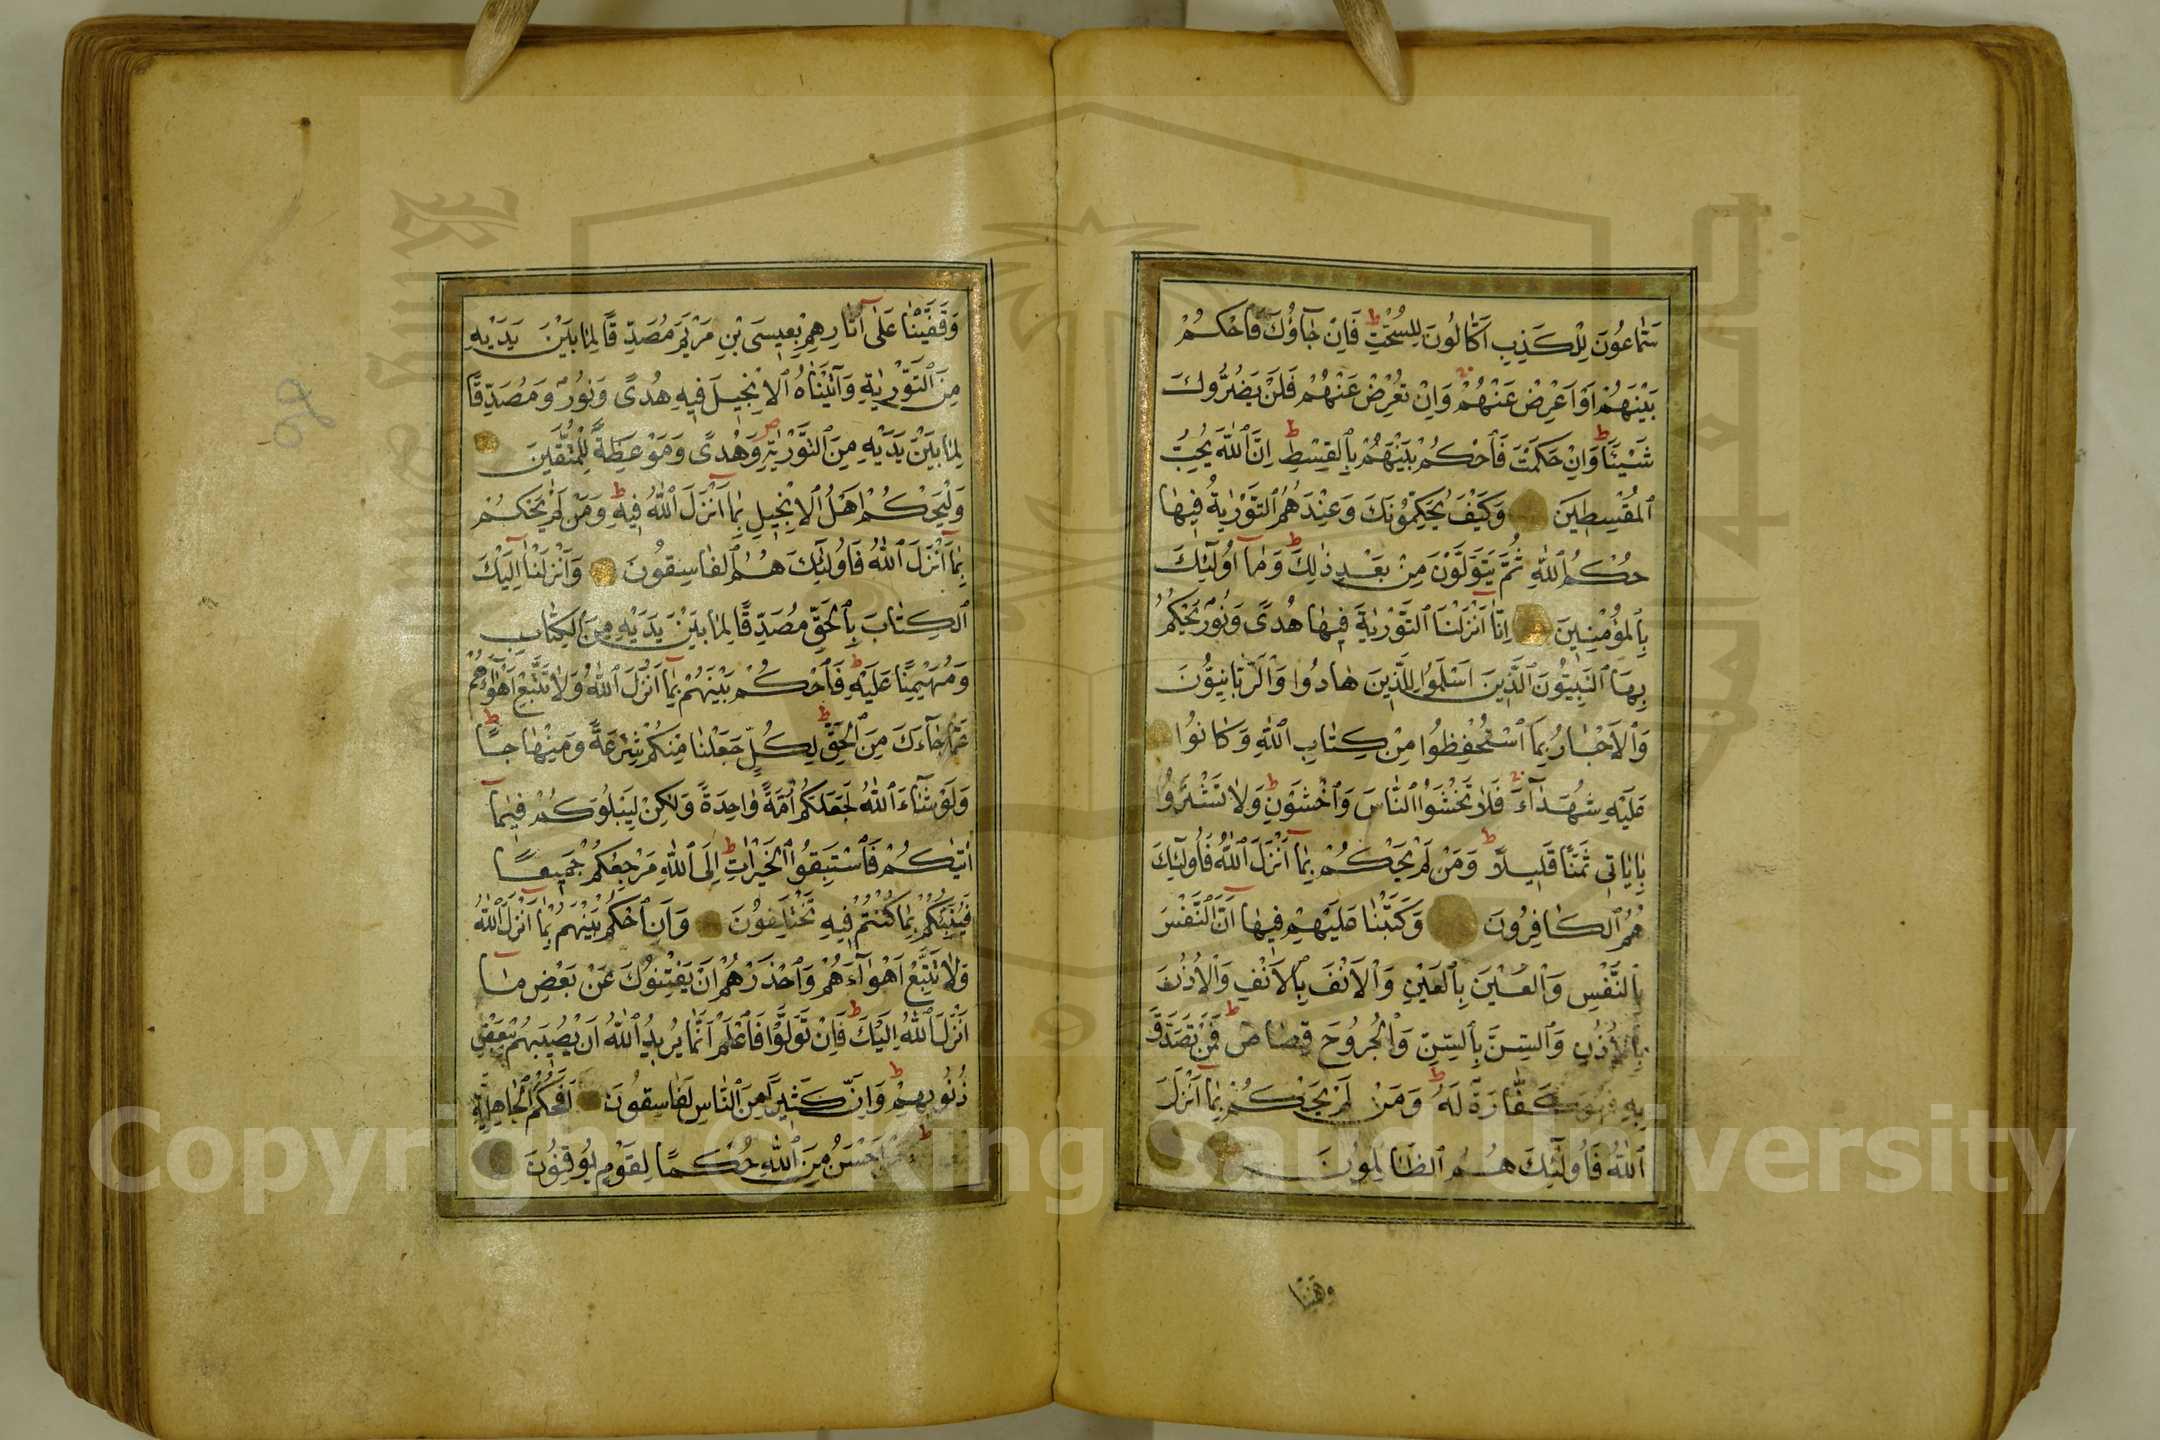 سَمَّاعُونَ لِلْكَذِبِ اَكَّالُونَ لِلسُّحْتِ ط فَاِنْ جَاؤُكَ فَاحْكُمْ
بَيْنَهُمْ اَوْ اَعْرِضْ عَنْهُمْ وَاِنْ تُعْرِضْ عَنْهُمْ فَلَنْ يَضُرُّوكَ
شَيْئًا ط وَاِنْ حَكَمْتَ فَاحْكُمْ بَيْنَهُمْ بِالْقِسْطِ ط اِنَّ اللّٰهَ يُحِبُّ
الْمُقْسِطِينَ وَكَيْفَ يُحَكِّمُونَكَ وَعِنْدَهُمُ التَّوْرٰيةُ فِيهَا
حُكْمُ اللّٰهِ ثُمَّ يَتَوَلَّوْنَ مِنْ بَعْدِ ذٰلِكَ ط وَمَآ اُولٰٓئِكَ
بِالْمُؤْمِنِينَ اِنَّآ اَنْزَلْنَا التَّوْرٰيةَ فِيهَا هُدًى وَنُورٌ يَحْكُمُ
بِهَا النَّبِيُّونَ الَّذِينَ اَسْلَمُوا لِلَّذِينَ هَادُوا وَالرَّبَّانِيُّونَ
وَالْاَحْبَارُ بِمَا اسْتُحْفِظُوا مِنْ كِتَابِ اللّٰهِ وَكَانُوا
عَلَيْهِ شُهَدَآءَ فَلَا تَخْشَوُا النَّاسَ وَاخْشَوْنِ ط وَلَا تَشْتَرُوا
بِاٰيَاتِى ثَمَنًا قَلِيلًا ط وَمَنْ لَمْ يَحْكُمْ بِمَآ اَنْزَلَ اللّٰهُ فَاُولٰٓئِكَ
هُمُ الْكَافِرُونَ وَكَتَبْنَا عَلَيْهِمْ فِيهَآ اَنَّ النَّفْسَ
بِالنَّفْسِ وَالْعَيْنَ بِالْعَيْنِ وَالْاَنْفَ بِالْاَنْفِ وَالْاُذُنَ
بِالْاُذُنِ وَالسِّنَّ بِالسِّنِّ وَالْجُرُوحَ قِصَاصٌ ط فَمَنْ تَصَدَّقَ
بِهِ فَهُوَ كَفَّارَةٌ لَهُ ط وَمَنْ لَمْ يَحْكُمْ بِمَآ اَنْزَلَ
اللّٰهُ فَاُولٰٓئِكَ هُمُ الظَّالِمُونَ
وقفينا
وَقَفَّيْنَا عَلٰٓى اٰثَارِهِمْ بِعِيسَى بْنِ مَرْيَمَ مُصَدِّقًا لِمَا بَيْنَ يَدَيْهِ
مِنَ التَّوْرٰيةِ وَاٰتَيْنَاهُ الْاِنْجِيلَ فِيهِ هُدًى وَنُورٌ وَمُصَدِّقًا
لِمَا بَيْنَ يَدَيْهِ مِنَ التَّوْرٰيةِ وَهُدًى وَمَوْعِظَةً لِلْمُتَّقِينَ
وَلْيَحْكُمْ اَهْلُ الْاِنْجِيلِ بِمَآ اَنْزَلَ اللّٰهُ فِيهِ ط وَمَنْ لَمْ يَحْكُمْ
بِمَآ اَنْزَلَ اللّٰهُ فَاُولٰٓئِكَ هُمُ الْفَاسِقُونَ وَاَنْزَلْنَآ اِلَيْكَ
الْكِتَابَ بِالْحَقِّ مُصَدِّقًا لِمَا بَيْنَ يَدَيْهِ مِنَ الْكِتَابِ
وَمُهَيْمِنًا عَلَيْهِ ط فَاحْكُمْ بَيْنَهُمْ بِمَآ اَنْزَلَ اللّٰهُ وَلَا تَتَّبِعْ اَهْوَآءَهُمْ
عَمَّا جَآءَكَ مِنَ الْحَقِّ ط لِكُلٍّ جَعَلْنَا مِنْكُمْ شِرْعَةً وَمِنْهَاجًا ط
وَلَوْ شَآءَ اللّٰهُ لَجَعَلَكُمْ اُمَّةً وَاحِدَةً وَلٰكِنْ لِيَبْلُوَكُمْ فِيمَآ
اٰتٰيكُمْ فَاسْتَبِقُوا الْخَيْرَاتِ ط اِلَى اللّٰهِ مَرْجِعُكُمْ جَمِيعًا
فَيُنَبِّئُكُمْ بِمَا كُنْتُمْ فِيهِ تَخْتَلِفُونَ وَاَنِ احْكُمْ بَيْنَهُمْ بِمَآ اَنْزَلَ اللّٰهُ
وَلَا تَتَّبِعْ اَهْوَآءَهُمْ وَاحْذَرْهُمْ اَنْ يَفْتِنُوكَ عَنْ بَعْضِ مَآ
اَنْزَلَ اللّٰهُ اِلَيْكَ ط فَاِنْ تَوَلَّوْا فَاعْلَمْ اَنَّمَا يُرِيدُ اللّٰهُ اَنْ يُصِيبَهُمْ بِبَعْضِ
ذُنُوبِهِمْ ط وَاِنَّ كَثِيرًا مِنَ النَّاسِ لَفَاسِقُونَ اَفَحُكْمَ الْجَاهِلِيَّةِ
اَحْسَنُ مِنَ اللّٰهِ حُكْمًا لِقَوْمٍ يُوقِنُونَ
Copyright © King Saud University